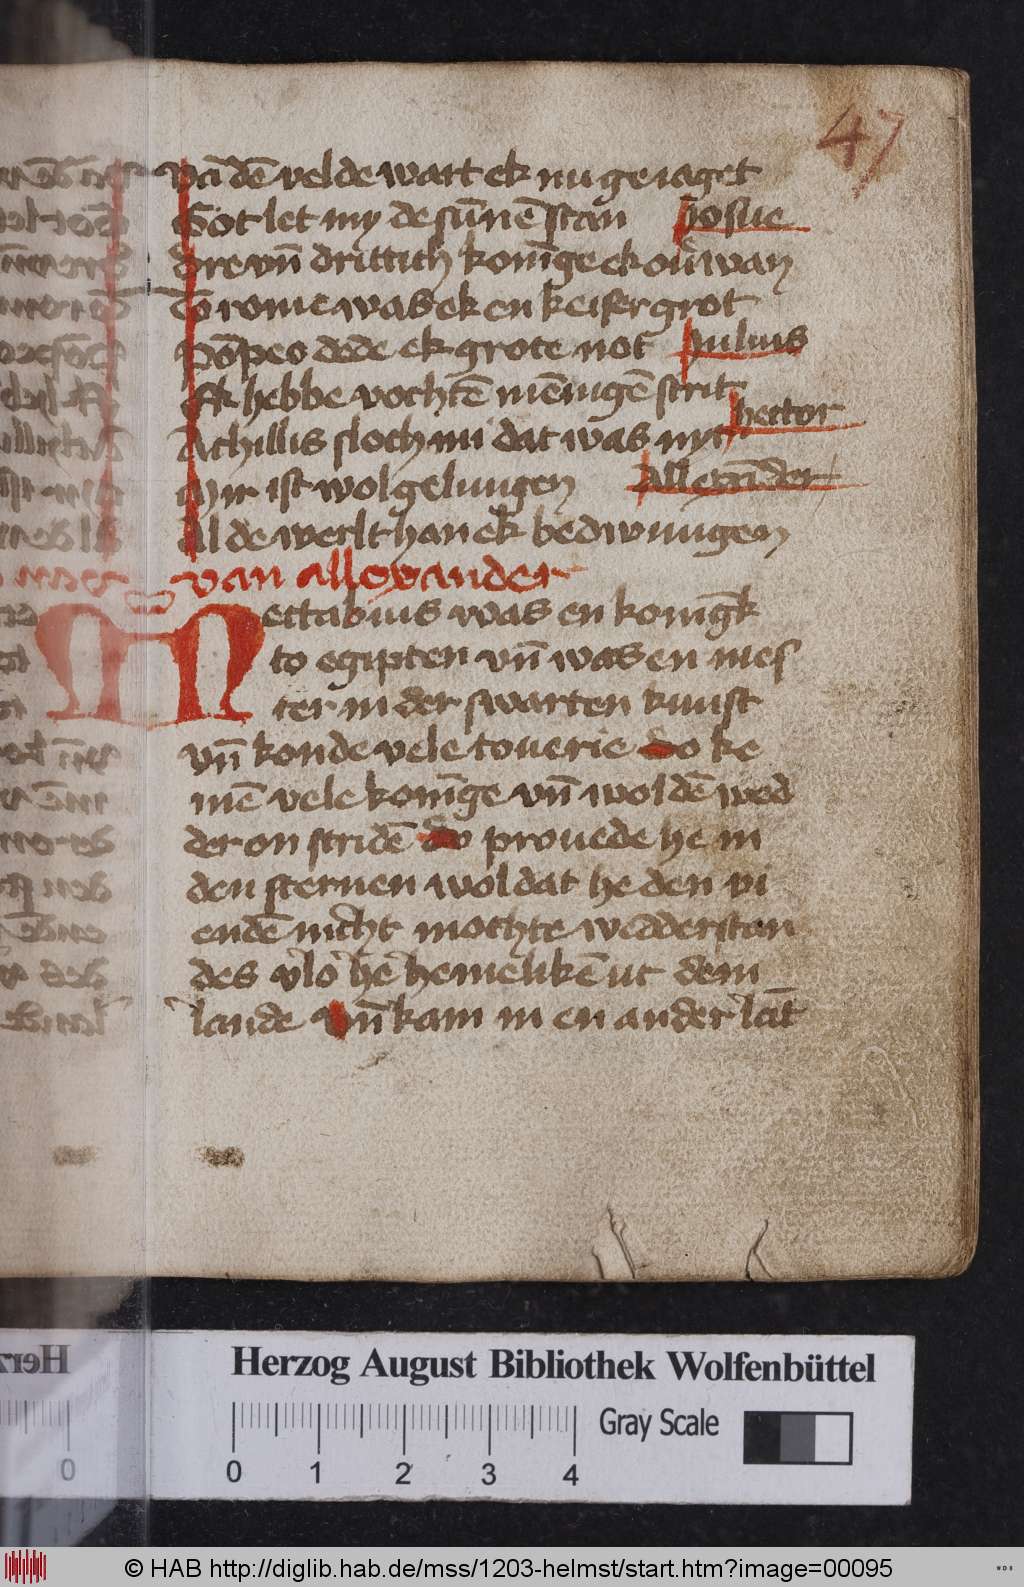 47
vā dē velde wart ek nu ge iaget
Got let my de sūnē stan Josue
dre vn̄ drittich konīge ek ouwan
To rome was ek en keiser grot
Pōpeo dede ek grote not Julius
Ek hebbe vochtē mēnigē strit
hector
Achillis sloch mi dat was nyt
Mir ist wol gelungen Allexāder
Al de werlt han ek bedwungen
van allexander
Nectabius was en konīgk
to egipten vn̄ was en mes
ter in der swarten kunst
vn̄ konde vele toverie do ke
mē vele konīge vn̄ woldē wed
der on stridē do provede he in
den sternen wol dat he den vi
endē nicht mochte wedderstan
des vlo he hemelikē ut dem
lande vn̄ kam in en ander lāt
Herzog August Bibliothek Wolfenbüttel
Gray Scale
0 1 2 3 4
© HAB http://diglib.hab.de/mss/1203-helmst/start.htm?image=00095